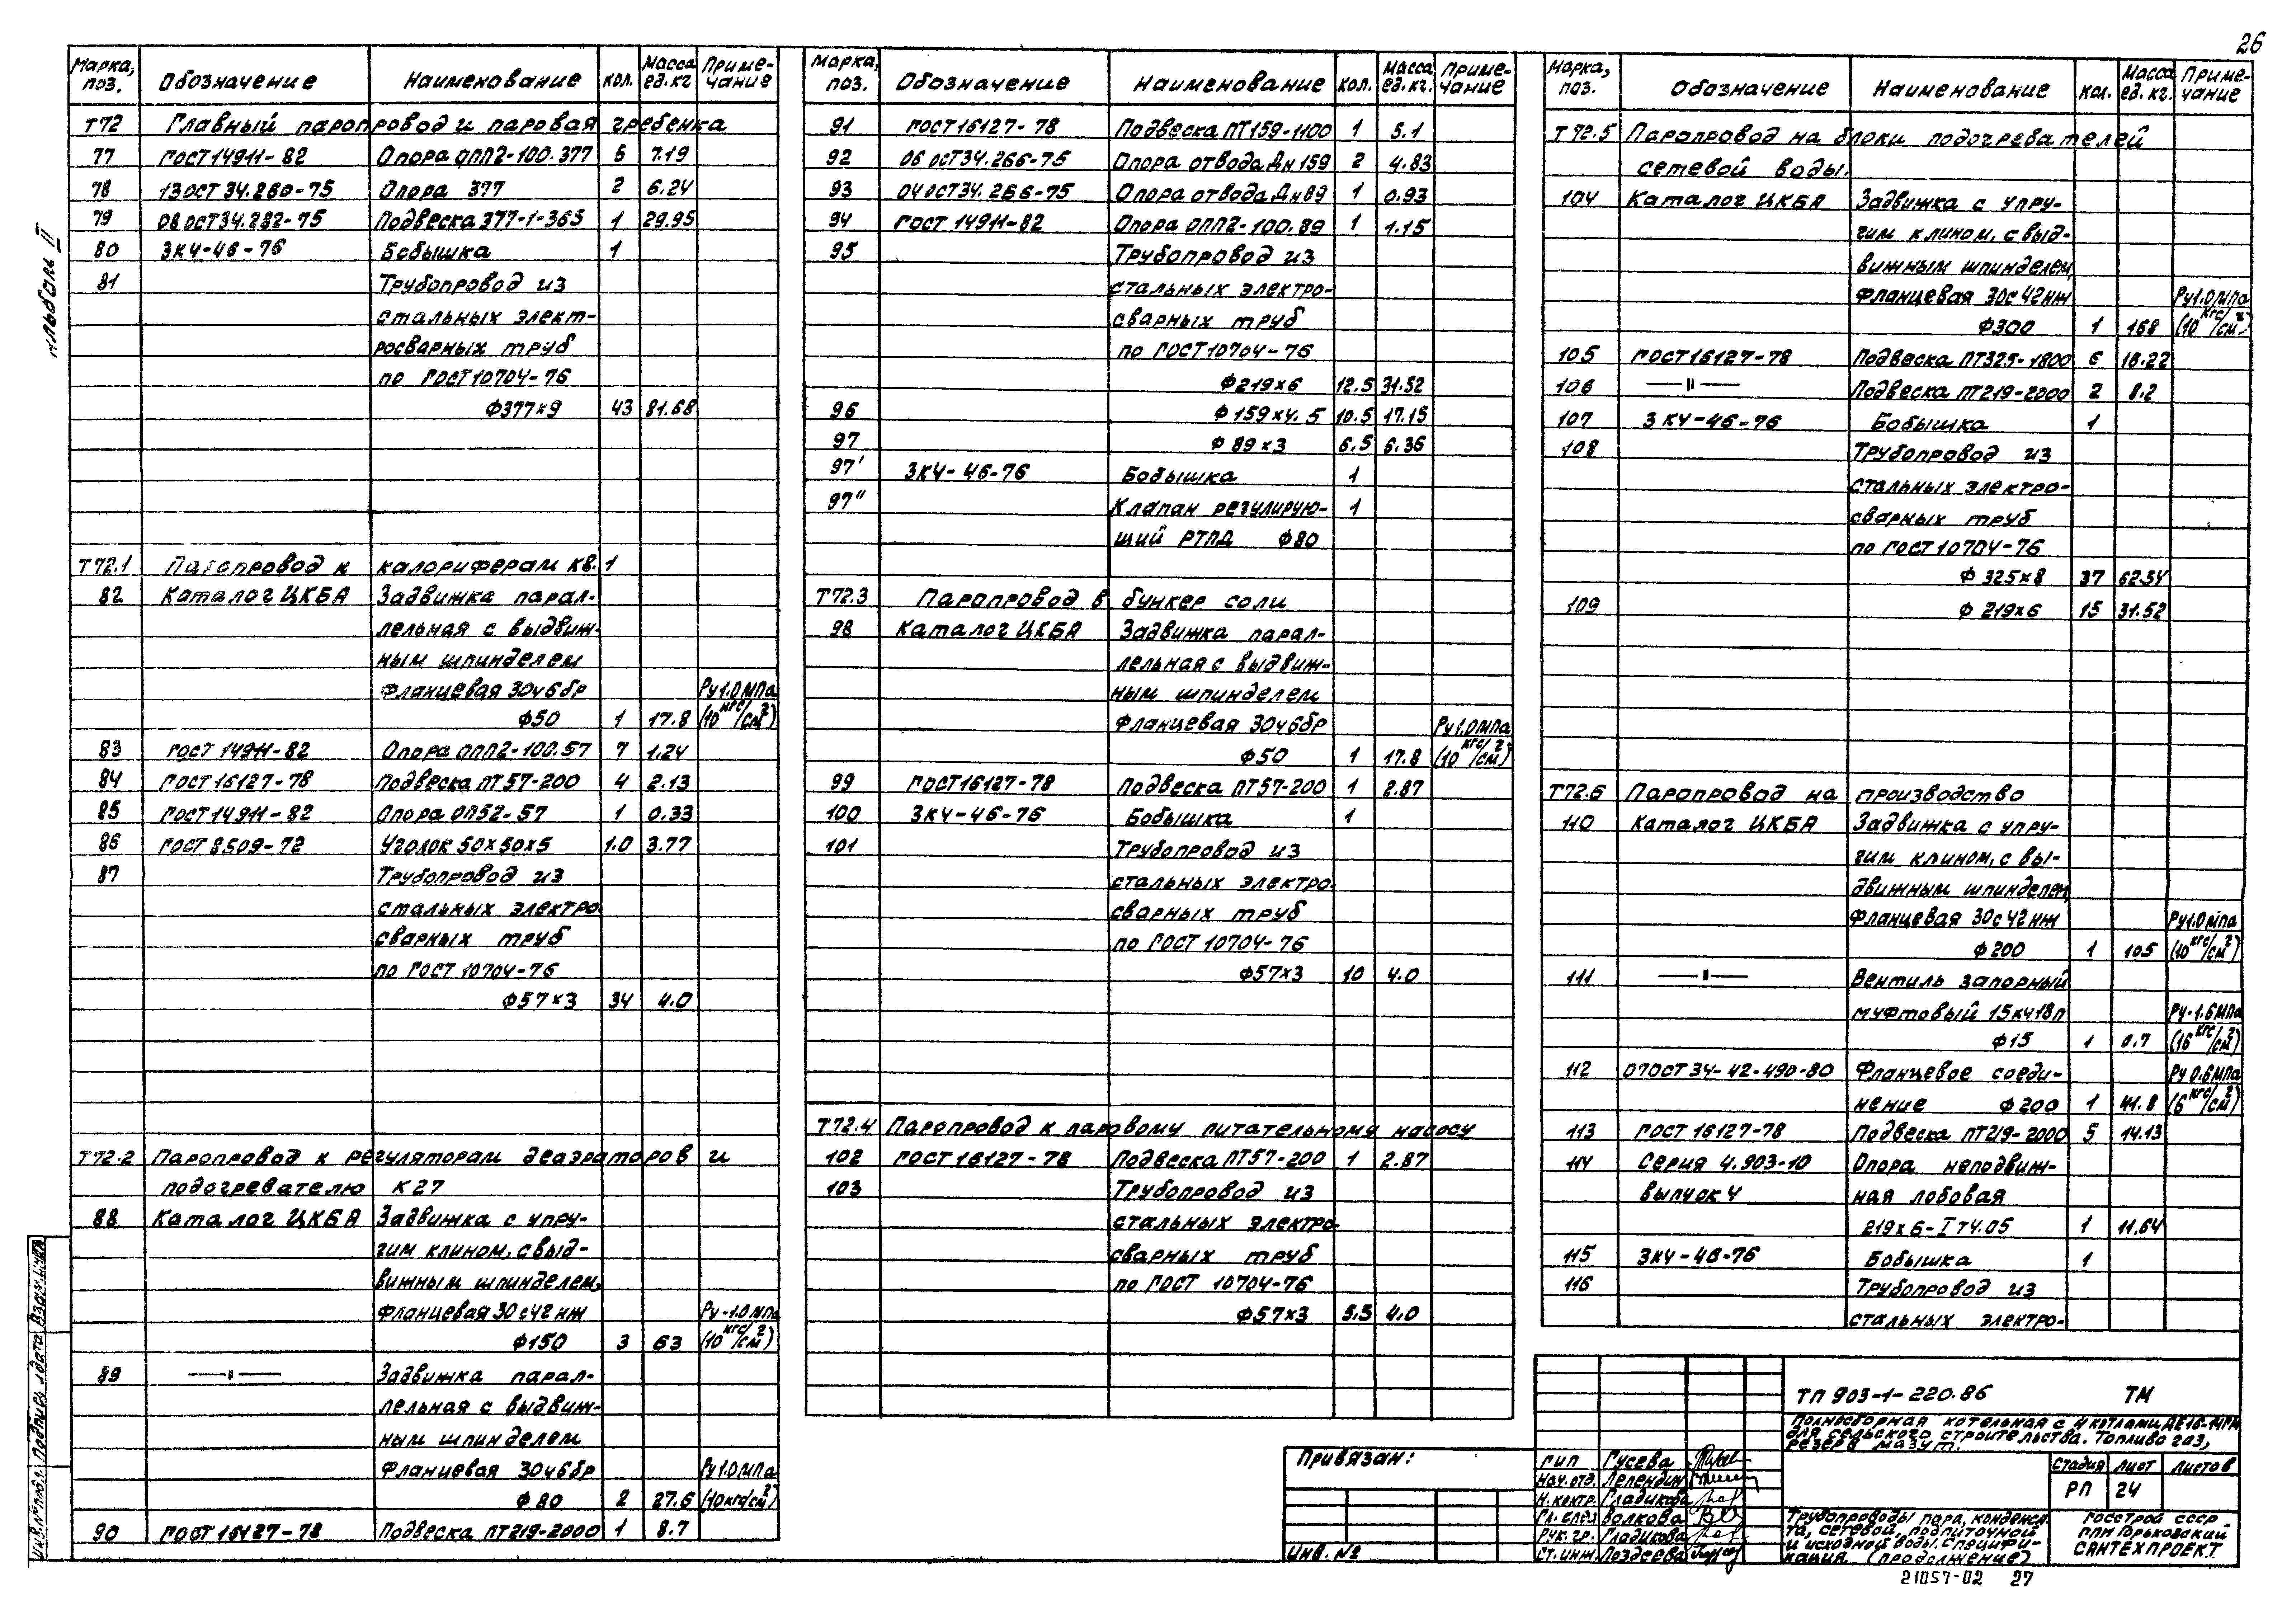 26
Альбом II
Марка, поз. Обозначение Наименование кол. Масса ед.кг Приме-чание
Т72 Главный паропровод и паровая гребенка
77 ГОСТ 14911-82 Опора ОПП2-100.377 5 7.19
78 13 ОСТ 34.260-75 Опора 377 2 6.24
79 08 ОСТ 34.282-75 Подвеска 377-1-365 1 29.95
80 ЗК4-46-76 Бобышка 1
81 Трубопровод из
стальных элект-
росварных труб
по ГОСТ 10704-76
Ф377×9 43 81.68
Т72.1 Паропровод к калориферам кв.1
82 Каталог ЦКБА Задвижка парал-
лельная с выдвиж-
ным шпинделем
фланцевая 30ч6бр Ру1.0МПа
Ф50 1 17.8 (10 кгс/см²)
83 ГОСТ 14911-82 Опора ОПП2-100.57 7 1.24
84 ГОСТ 16127-78 Подвеска ПТ57-200 4 2.13
85 ГОСТ 14911-82 Опора ОПБ2-57 1 0.33
86 ГОСТ 8509-72 Уголок 50×50×5 1.0 3.77
87 Трубопровод из
стальных электро
сварных труб
по ГОСТ 10704-76
Ф57×3 34 4.0
Т72.2 Паропровод к регуляторам деаэраторов и
подогревателю К27
88 Каталог ЦКБА Задвижка с упру-
гим клином, с выд-
вижным шпинделем,
фланцевая 30с42нж Ру-1.0МПа
Ф150 3 63 (10 кгс/см²)
89 —"— Задвижка парал-
лельная с выдвиж-
ным шпинделем
фланцевая 30ч6бр Ру1.0МПа
Ф80 2 27.6 (10кгс/см²)
90 ГОСТ 16127-78 Подвеска ПТ219-2000 1 8.7
Марка, поз. Обозначение Наименование кол. Масса ед.кг. Приме-чание
91 ГОСТ 16127-78 Подвеска ПТ159-1100 1 5.1
92 06 ОСТ 34.266-75 Опора отвода Дн159 2 4.83
93 04 ОСТ 34.266-75 Опора отвода Дн89 1 0.93
94 ГОСТ 14911-82 Опора ОПП2-100.89 1 1.15
95 Трубопровод из
стальных электро-
сварных труб
по ГОСТ 10704-76
Ф219×6 12.5 31.52
96 Ф159×4.5 10.5 17.15
97 Ф89×3 6.5 6.36
97' ЗК4-46-76 Бобышка 1
97" Клапан регулирую- 1
щий РТПД Ф80
Т72.3 Паропровод в бункер соли
98 Каталог ЦКБА Задвижка парал-
лельная с выдвиж-
ным шпинделем
фланцевая 30ч6бр Ру1.0МПа
Ф50 1 17.8 (10 кгс/см²)
99 ГОСТ 16127-78 Подвеска ПТ57-200 1 2.87
100 ЗК4-46-76 Бобышка 1
101 Трубопровод из
стальных электро
сварных труб
по ГОСТ 10704-76
Ф57×3 10 4.0
Т72.4 Паропровод к паровому питательному насосу
102 ГОСТ 16127-78 Подвеска ПТ57-200 1 2.87
103 Трубопровод из
стальных электро-
сварных труб
по ГОСТ 10704-76
Ф57×3 5.5 4.0
Марка, поз. Обозначение Наименование кол. Масса ед.кг. Приме-чание
Т72.5 Паропровод на блоки подогревателей
сетевой воды.
104 Каталог ЦКБА Задвижка с упру-
гим клином, с выд-
вижным шпинделем,
фланцевая 30с42нж Ру1.0МПа
Ф300 1 168 (10 кгс/см²)
105 ГОСТ 16127-78 Подвеска ПТ325-1800 6 16.22
106 —"— Подвеска ПТ219-2000 2 8.2
107 ЗК4-46-76 Бобышка 1
108 Трубопровод из
стальных электро-
сварных труб
по ГОСТ 10704-76
Ф325×8 37 62.54
109 Ф219×6 15 31.52
Т72.6 Паропровод на производство
110 Каталог ЦКБА Задвижка с упру-
гим клином, с вы-
движным шпинделем,
фланцевая 30с42нж Ру1.0МПа
Ф200 1 105 (10 кгс/см²)
111 —"— Вентиль запорный
муфтовый 15кч18п Ру-1.6МПа
Ф15 1 0.7 (16 кгс/см²)
112 07 ОСТ 34-42-490-80 Фланцевое соеди- Ру0.6МПа
нение Ф200 1 41.8 (6 кгс/см²)
113 ГОСТ 16127-78 Подвеска ПТ219-2000 5 14.13
114 Серия 4.903-10 Опора неподвиж-
выпуск 4 ная лобовая
219×6-I Т4.05 1 11.64
115 ЗК4-46-76 Бобышка 1
116 Трубопровод из
стальных электро-
ТП 903-1-220.86 ТМ
Полносборная котельная с 4 котлами ДЕ16-14ГМ
для сельского строительства. Топливо газ,
резерв мазут.
Стадия Лист Листов
РП 24
Трубопроводы пара, конденса-
та, сетевой, подпиточной
и исходной воды. Специфи-
кация. (продолжение)
Госстрой СССР
ГПИ Горьковский
Сантехпроект
Привязан:
Инв. №
ГИП Гусева
Нач. отд. Лепендин
Н. контр. Гладикова
Гл. спец. Волкова
Рук. гр. Гладикова
Ст. инж. Поздеева
Инв. № подл. Подпись и дата Взам. инв. №
21057-02 27